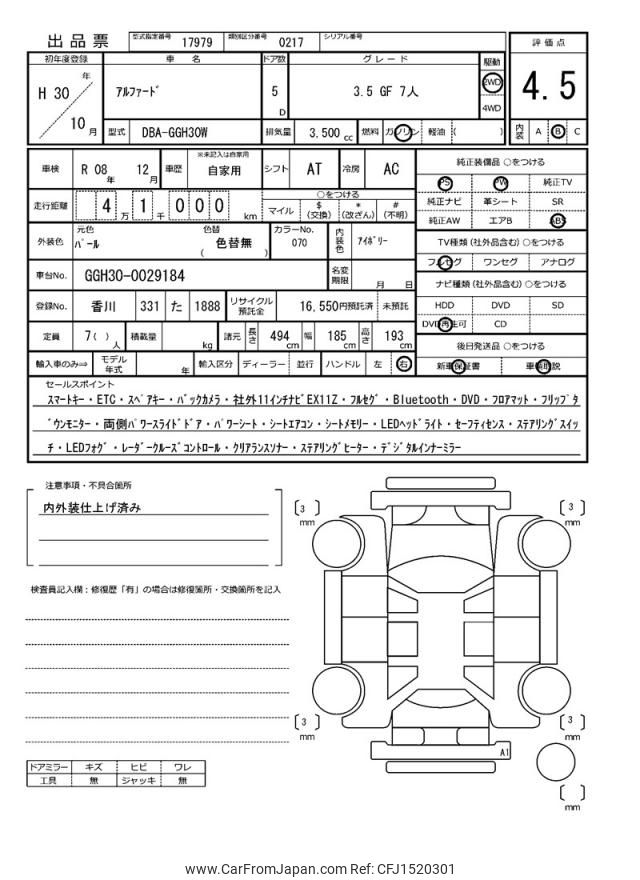 出品票
型式指定番号 17979 類別区分番号 0217 シリアル番号
評価点
4.5
内装 A B C
初年度登録 車名 ドア数 グレード 駆動
H 30 年 10 月
アルファード 5 D 3.5 GF 7人 2WD 4WD
型式 DBA-GGH30W 排気量 3,500 cc 燃料 ガソリン 軽油 ( )
車検 R 08 年 12 月 車歴 ※未記入は自家用 自家用 シフト AT 冷房 AC
走行距離 4 万 1 千 0 0 0 km
○をつける
マイル $(交換) *(改ざん) #(不明)
外装色 元色 パール 色替 ( 色替無 ) カラーNo. 070 内装色 アイボリー
車台No. GGH30-0029184 名変期限 月 日
登録No. 香川 331 た 1888 リサイクル預託金 16,550円預託済 未預託
定員 7( ) 人 積載量 kg 諸元 長さ 494 cm 幅 185 cm 高さ 193 cm
輸入車のみ⇒ モデル年式 年 輸入区分 ディーラー ・ 並行 ハンドル 左 ・ 右
純正装備品 ○をつける
PS PW 純正TV
純正ナビ 革シート SR
純正AW エアB ABS
TV種類 (社外品含む) ○をつける
フルセグ ワンセグ アナログ
ナビ種類 (社外品含む) ○をつける
HDD DVD SD
DVD再生可 CD
後日発送品 ○をつける
新車保証書 車載取説
セールスポイント
スマートキー・ETC・スペアキー・バックカメラ・社外11インチナビEX11Z・フルセグ・Bluetooth・DVD・フロアマット・フリップダ
ウンモニター・両側パワースライドドア・パワーシート・シートエアコン・シートメモリー・LEDヘッドライト・セーフティセンス・ステアリングスイッ
チ・LEDフォグ・レーダークルーズコントロール・クリアランスソナー・ステアリングヒーター・デジタルインナーミラー
注意事項・不具合箇所
内外装仕上げ済み
検査員記入欄:修復歴「有」の場合は修復箇所・交換箇所を記入
ドアミラー キズ ヒビ ワレ
工具 無 ジャッキ 無
[ 3 ] mm
[ 3 ] mm
[ 3 ] mm
[ 3 ] mm
A1
[ ] mm
www.CarFromJapan.com Ref: CFJ1520301